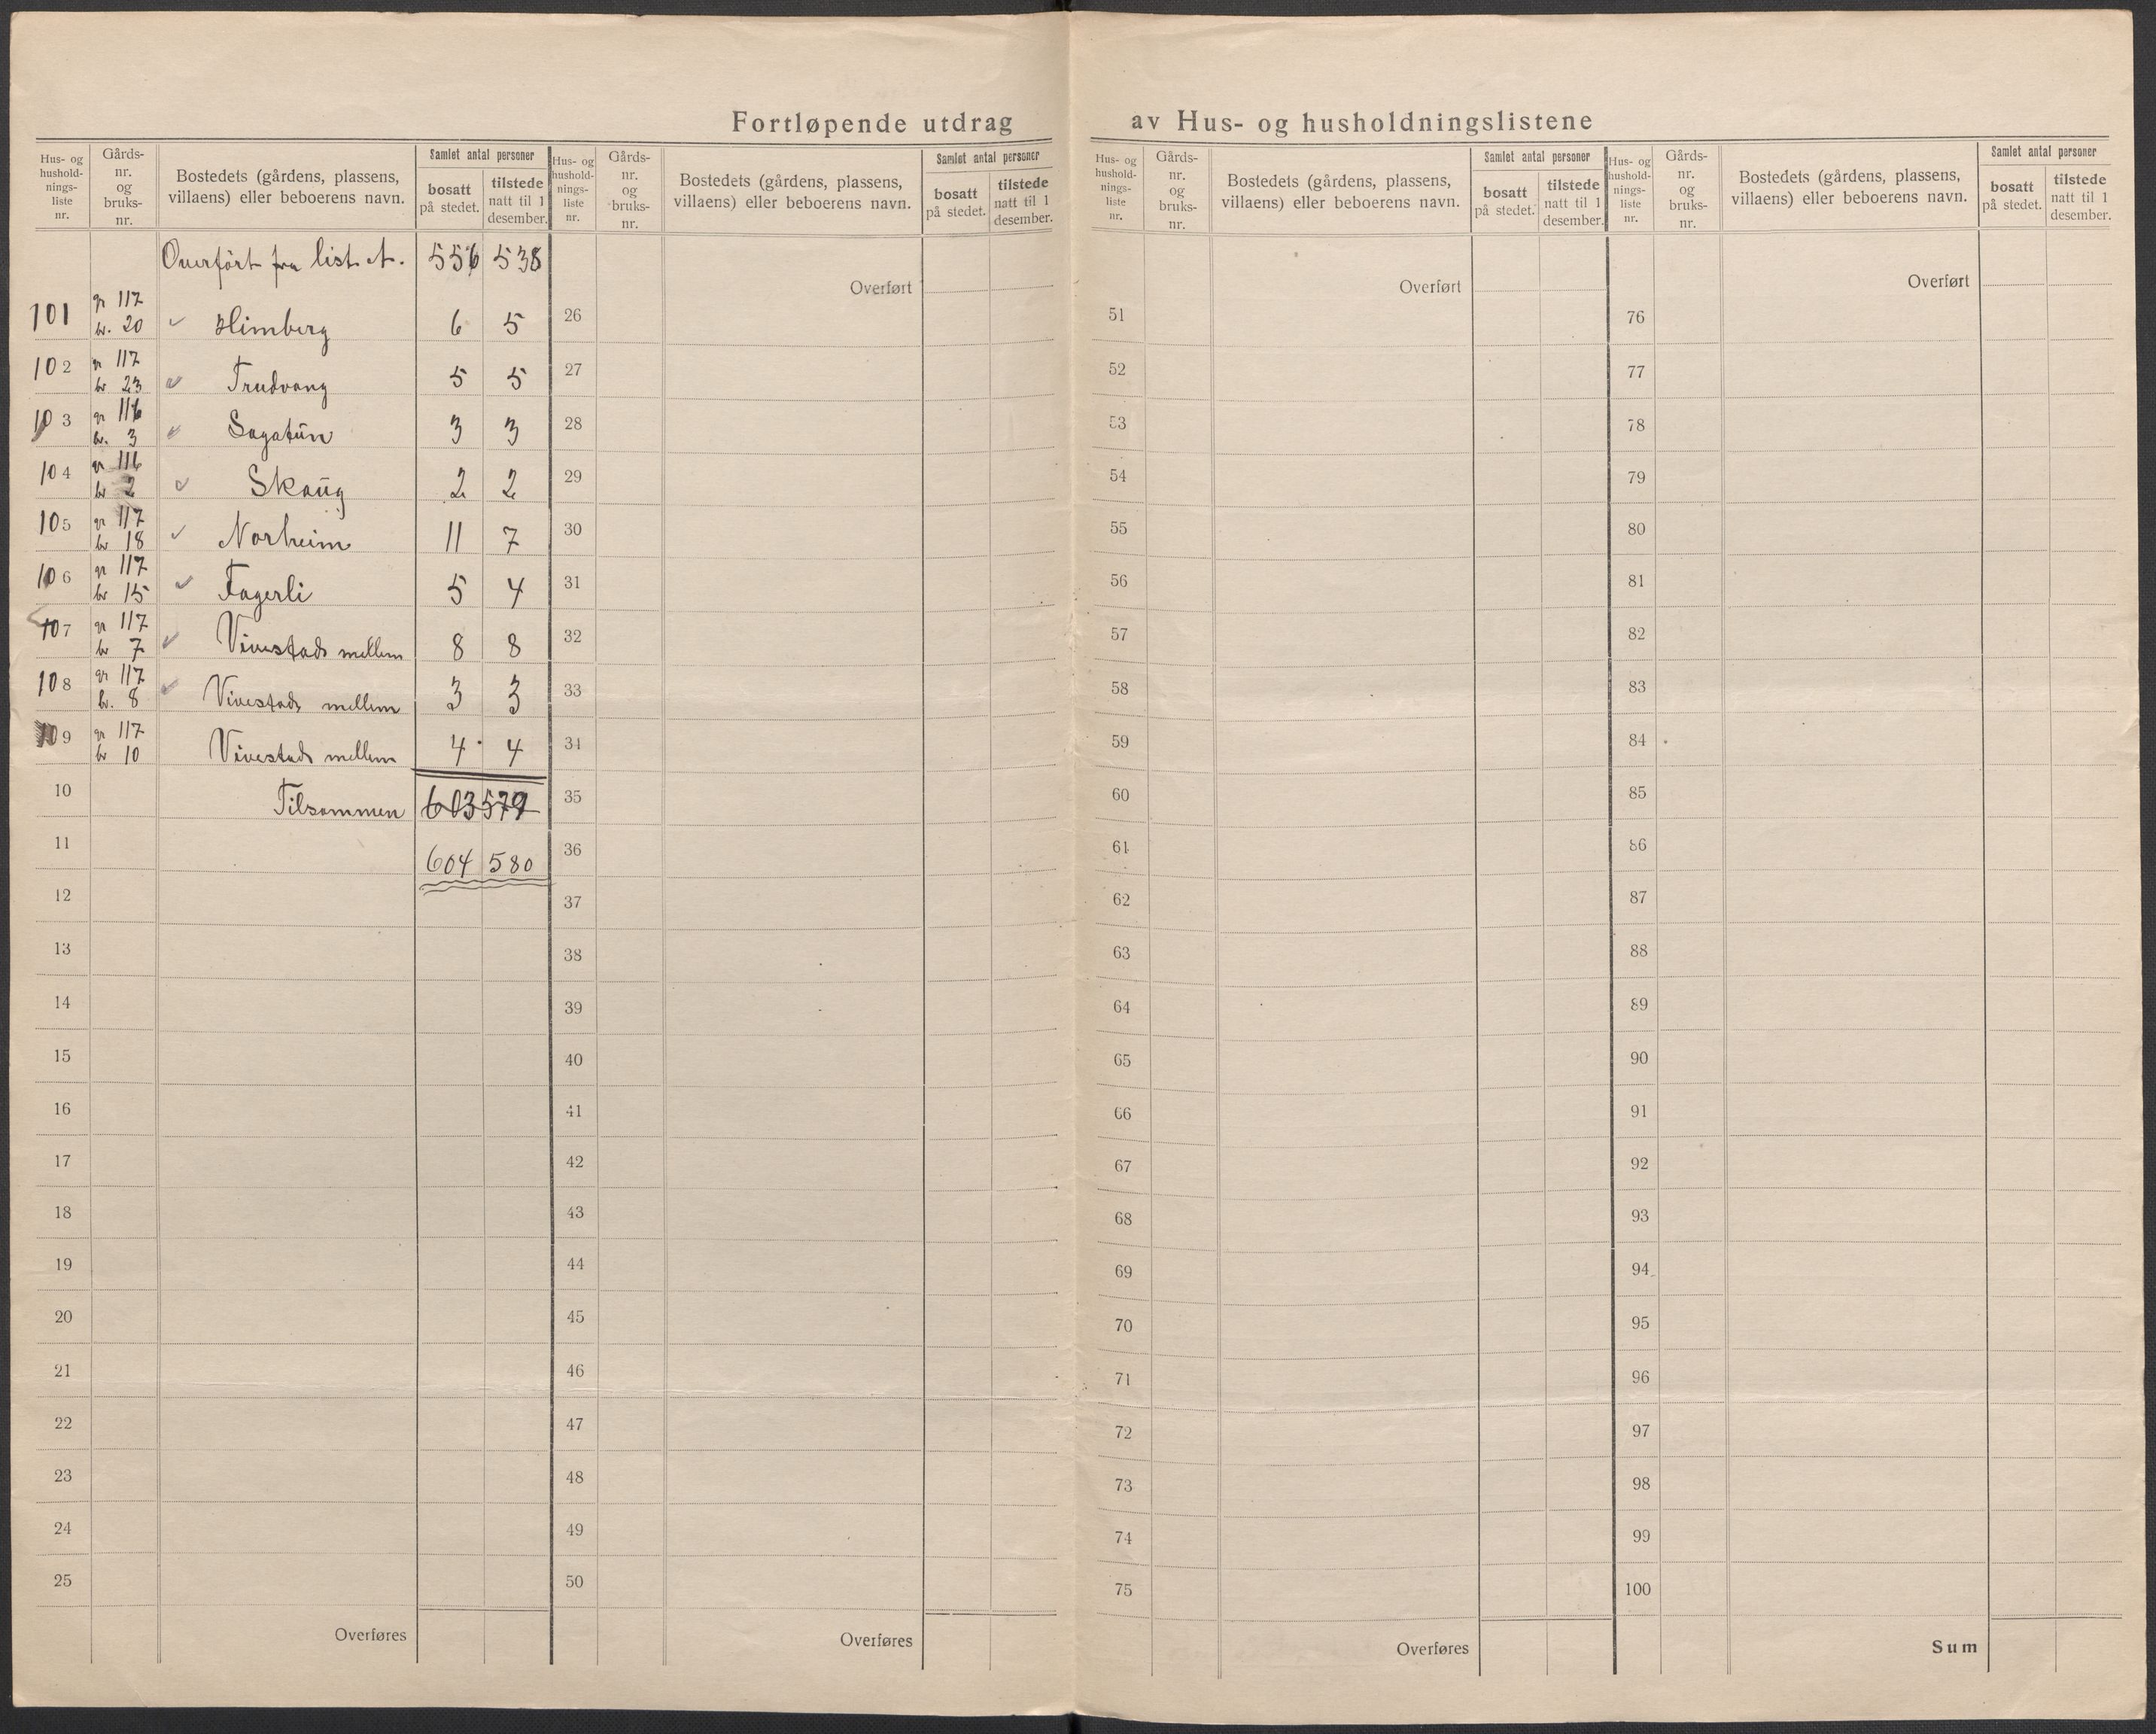 Fortløpende utdrag av Hus- og husholdningslistene
Hus- og hushold- nings- liste nr.
Gårds- nr. og bruks- nr.
Bostedets (gårdens, plassens, villaens) eller beboerens navn.
Samlet antal personer
bosatt på stedet.
tilstede natt til 1 desember.
Hus- og hushold- nings- liste nr.
Gårds- nr. og bruks- nr.
Bostedets (gårdens, plassens, villaens) eller beboerens navn.
Samlet antal personer
bosatt på stedet.
tilstede natt til 1 desember.
Hus- og hushold- nings- liste nr.
Gårds- nr. og bruks- nr.
Bostedets (gårdens, plassens, villaens) eller beboerens navn.
Samlet antal personer
bosatt på stedet.
tilstede natt til 1 desember.
Hus- og hushold- nings- liste nr.
Gårds- nr. og bruks- nr.
Bostedets (gårdens, plassens, villaens) eller beboerens navn.
Samlet antal personer
bosatt på stedet.
tilstede natt til 1 desember.
Overført fra list. 556 538
101 gr 117 br. 20 Himberg 6 5
102 gr 117 br 23 Trudvang 5 5
103 gr 116 br. 3 Sagatun 3 3
104 gr 116 br 2 Skaug 2 2
105 gr 117 br 18 Norheim 11 7
106 gr 117 br 15 Fagerli 5 4
107 gr 117 br 7 Vivestad mellem 8 8
108 gr 117 br. 8 Vivestad mellem 3 3
109 gr 117 br 10 Vivestad mellem 4 4
10 Tilsammen 603 579
11 604 580
12
13
14
15
16
17
18
19
20
21
22
23
24
25
Overføres
Overført
26
27
28
29
30
31
32
33
34
35
36
37
38
39
40
41
42
43
44
45
46
47
48
49
50
Overføres
Overført
51
52
53
54
55
56
57
58
59
60
61
62
63
64
65
66
67
68
69
70
71
72
73
74
75
Overføres
Overført
76
77
78
79
80
81
82
83
84
85
86
87
88
89
90
91
92
93
94
95
96
97
98
99
100
Sum